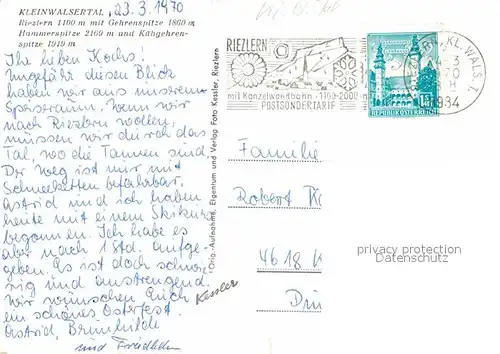 KLEINWALSERTAL 23.3.1970
Riezlern 1100 m mit Gehrenspitze 1860 m
Hammerspitze 2169 m und Kühgehren-
spitze 1949 m
Ihr lieben Kochs!
Ungefähr diesen Blick
haben wir aus unserem
Speiseraum. Wenn wir
nach Riezlern wollen,
müssen wir durch das
Tal, wo die Tannen sind.
Der Weg ist nur mit
Schneeketten befahrbar.
Astrid und ich haben
heute mit einem Skikurs
begonnen. Ich habe es
aber nach 1 Std. aufge-
geben. Es ist doch schwie-
rig und anstrengend.
Wir wünschen Euch
ein schönes Osterfest.
Astrid, Brunhilde
und Friedhelm
Kessler
Orig.-Aufnahme, Eigentum und Verlag Foto Kessler, Riezlern
RIEZLERN
mit Kanzelwandbahn · 1100-2000
POSTSONDERTARIF
KL. WALS. T.
REPUBLIK ÖSTERREICH
Familie
Robert
4618
privacy protection
Datenschutz